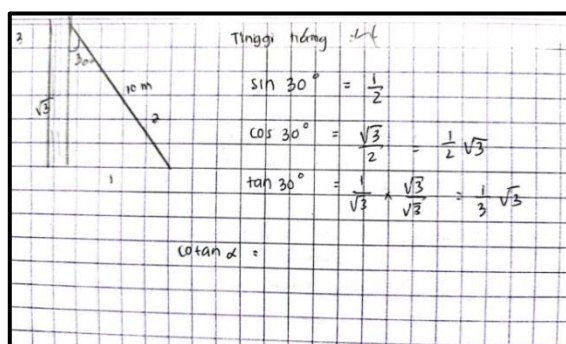 3
30°
10 m
√3
2
1
Tinggi
sin 30° = 1/2
cos 30° = √3/2 = 1/2 √3
tan 30° = 1/√3 × √3/√3 = 1/3 √3
cotan α =